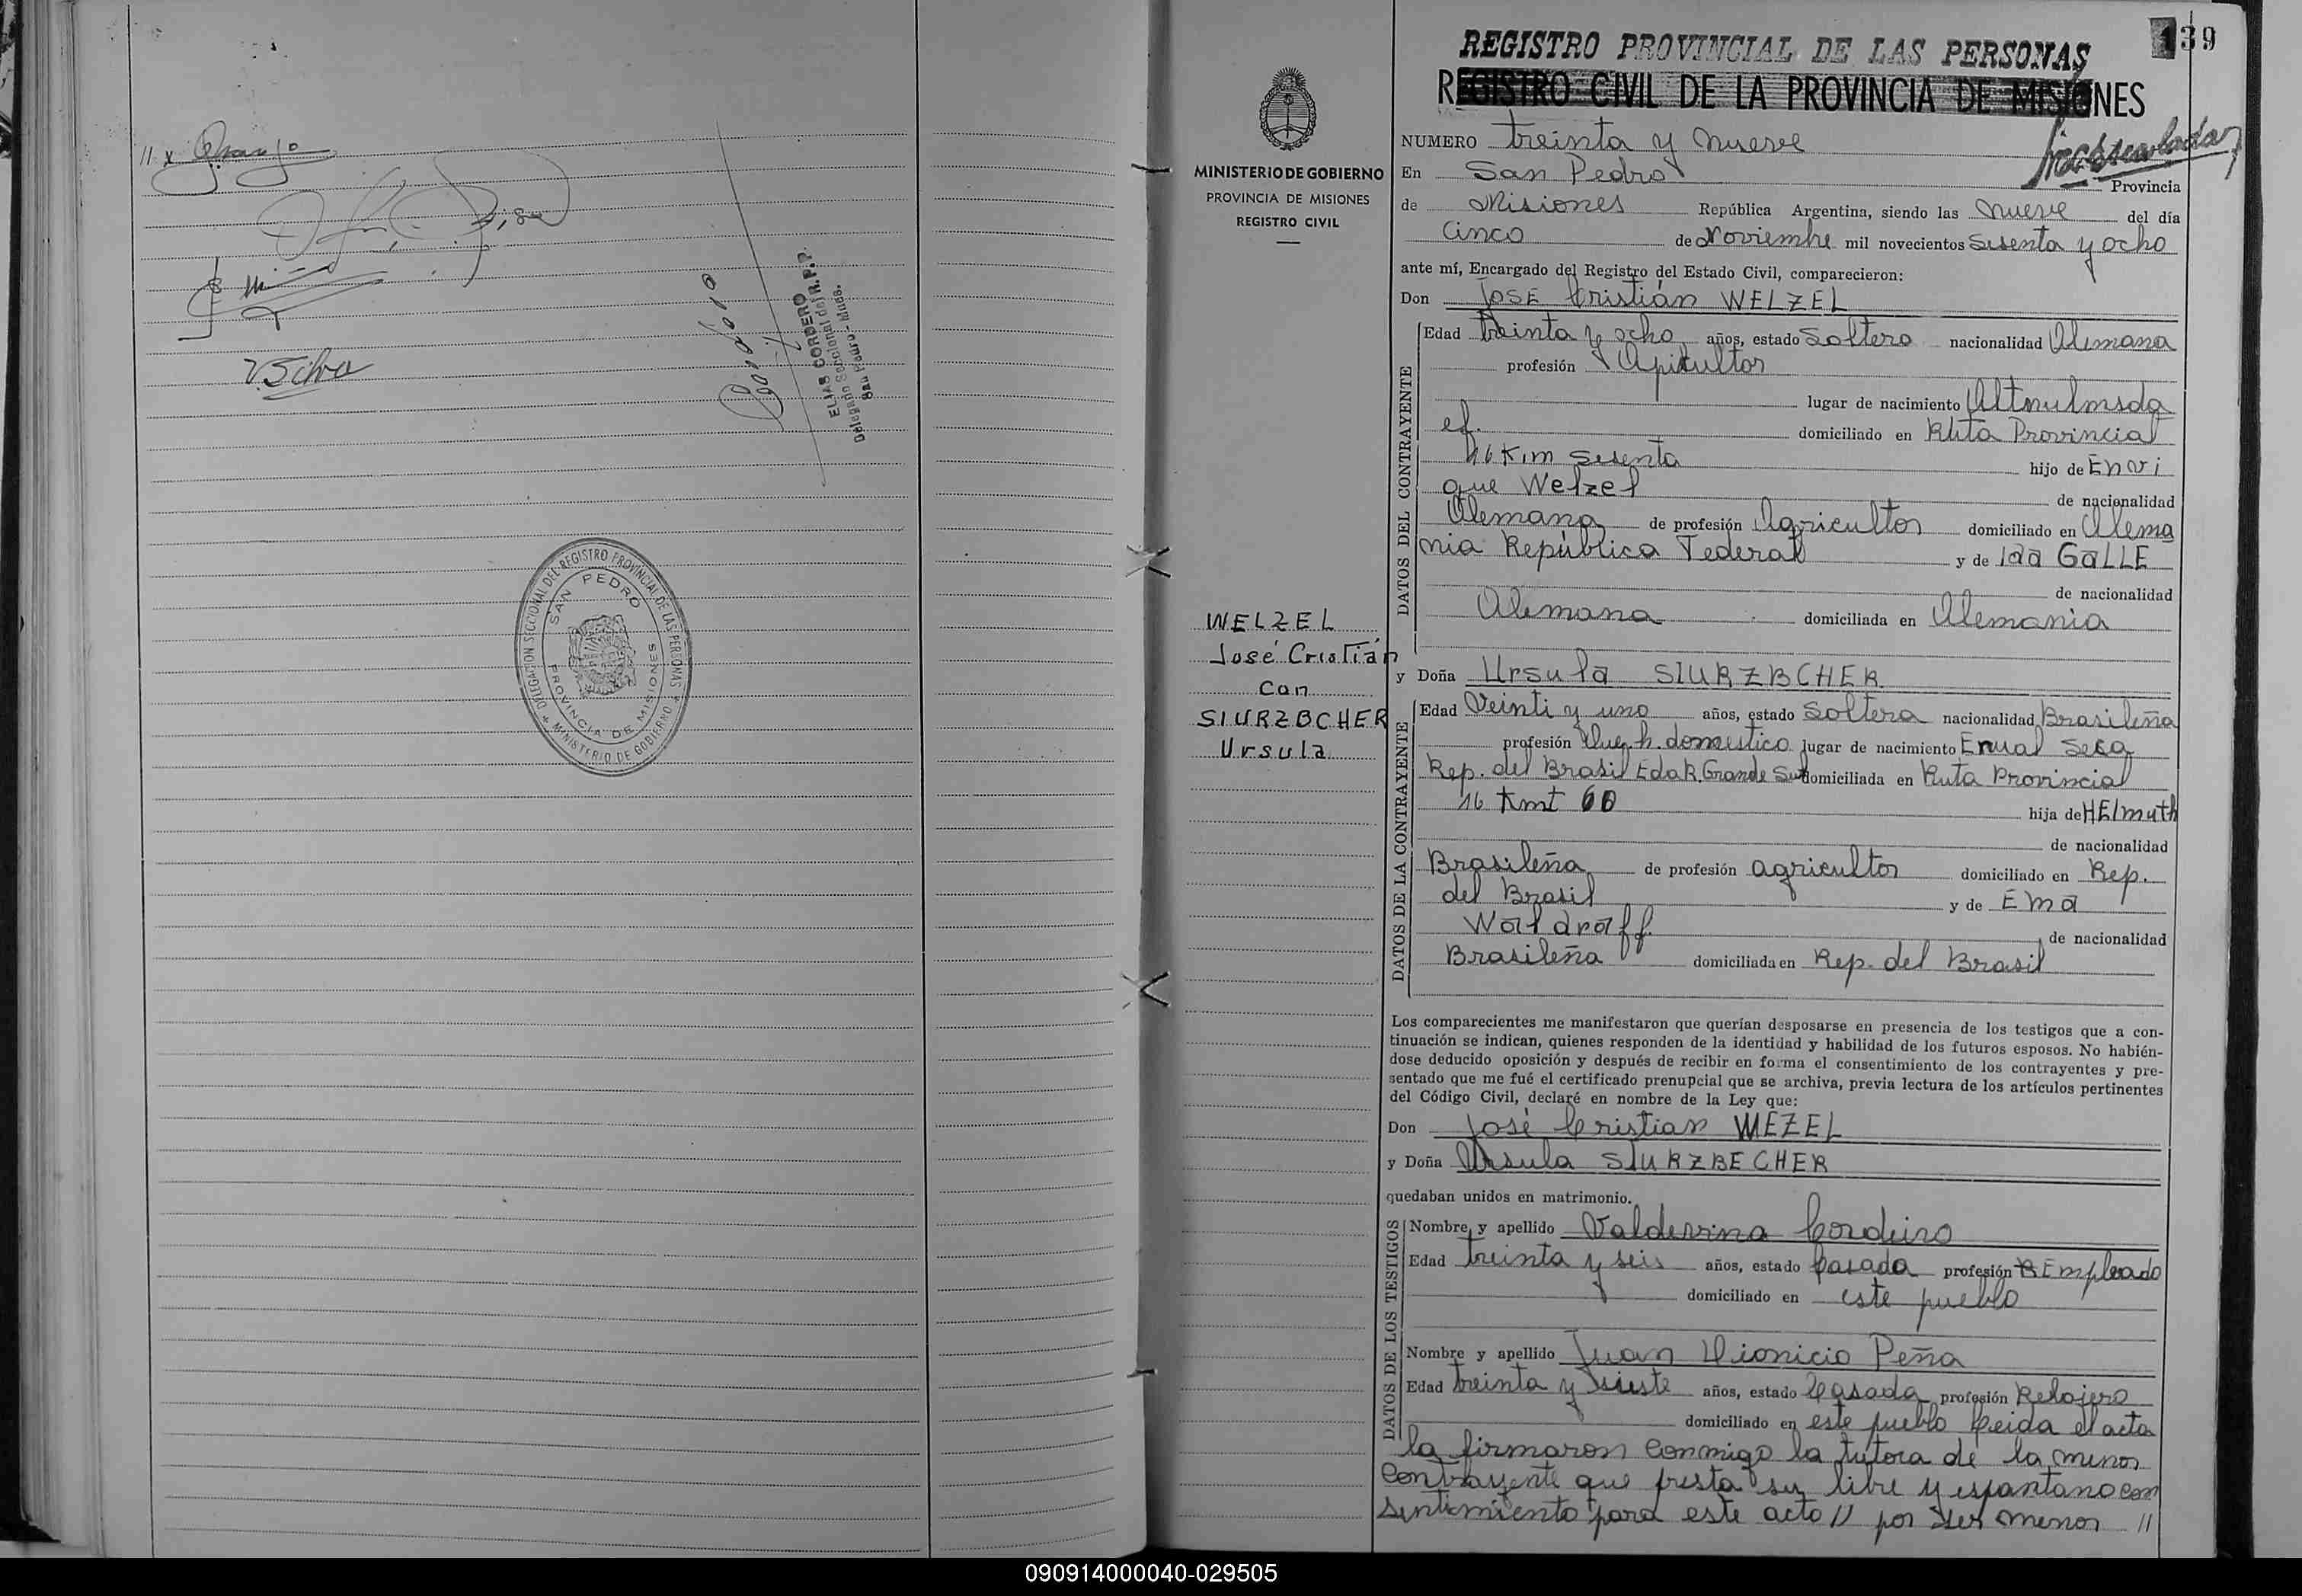 Cordero
ELIAS CORDERO
Delegado Seccional del R.P.P.
San Pedro - Mnes.
V. Silva
DELEGACION SECCIONAL DEL REGISTRO PROVINCIAL DE LAS PERSONAS
MINISTERIO DE GOBIERNO
SAN PEDRO
PROVINCIA DE MISIONES
MINISTERIO DE GOBIERNO
PROVINCIA DE MISIONES
REGISTRO CIVIL
WELZEL
José Cristián
Con
SIURZBCHER
Ursula
139
REGISTRO PROVINCIAL DE LAS PERSONAS
REGISTRO CIVIL DE LA PROVINCIA DE MISIONES
NUMERO treinta y nueve
En San Pedro Provincia
de Misiones República Argentina, siendo las nueve del día
Cinco de Noviembre mil novecientos sesenta y ocho
ante mí, Encargado del Registro del Estado Civil, comparecieron:
Don JOSE Cristián WELZEL
DATOS DEL CONTRAYENTE
Edad treinta y ocho años, estado Soltero nacionalidad Alemana
profesión Apicultor
lugar de nacimiento Altmulmsda
ef. domiciliado en Ruta Provincial
16 Kim sesenta hijo de Enri
que Welzel de nacionalidad
Alemana de profesión Agricultor domiciliado en Alema
nia República Federal y de Ida GaLLE
de nacionalidad
Alemana domiciliada en Alemania
y Doña Ursula SIURZBCHER
DATOS DE LA CONTRAYENTE
Edad Veinti y uno años, estado Soltera nacionalidad Brasileña
profesión Que h. domestico lugar de nacimiento Erual Seca
Rep. del Brasil Edo R. Grande Sul domiciliada en Ruta Provincial
16 Kmt 60 hija de HElmuth
de nacionalidad
Brasileña de profesión agricultor domiciliado en Rep.
del Brasil y de Ema
Waldraff. de nacionalidad
Brasileña domiciliada en Rep. del Brasil
Los comparecientes me manifestaron que querían desposarse en presencia de los testigos que a con-
tinuación se indican, quienes responden de la identidad y habilidad de los futuros esposos. No habién-
dose deducido oposición y después de recibir en forma el consentimiento de los contrayentes y pre-
sentado que me fué el certificado prenupcial que se archiva, previa lectura de los artículos pertinentes
del Código Civil, declaré en nombre de la Ley que:
Don José Cristian WEZEL
y Doña Ursula SIURZBECHER
quedaban unidos en matrimonio.
DATOS DE LOS TESTIGOS
Nombre y apellido Valdevina Cordeiro
Edad treinta y seis años, estado Casada profesión Empleado
domiciliado en este pueblo
Nombre y apellido Juan Dionicio Peña
Edad treinta y siete años, estado Casada profesión Relojero
domiciliado en este pueblo Leida el acta
la firmaron conmigo la tutora de la menor
contrayente que presta su libre y espantano con
sentimiento para este acto // por ser menor //
090914000040-029505